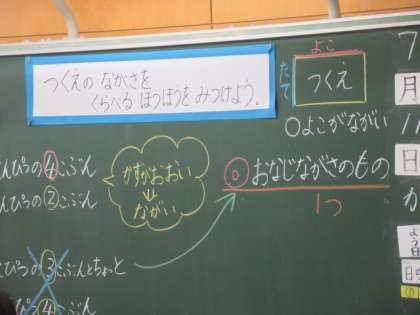 つくえの ながさを
くらべる ほうほうを みつけよう。
よこ
たて
つくえ
○よこがながい
んぴつの④こぶん
んぴつの②こぶん
かずがおおい
↓
ながい
◎おなじながさのもの
1つ
んぴつの③こぶんとちょっと
ぴつ④こぶん
7
月
11
日
か
よう日
日